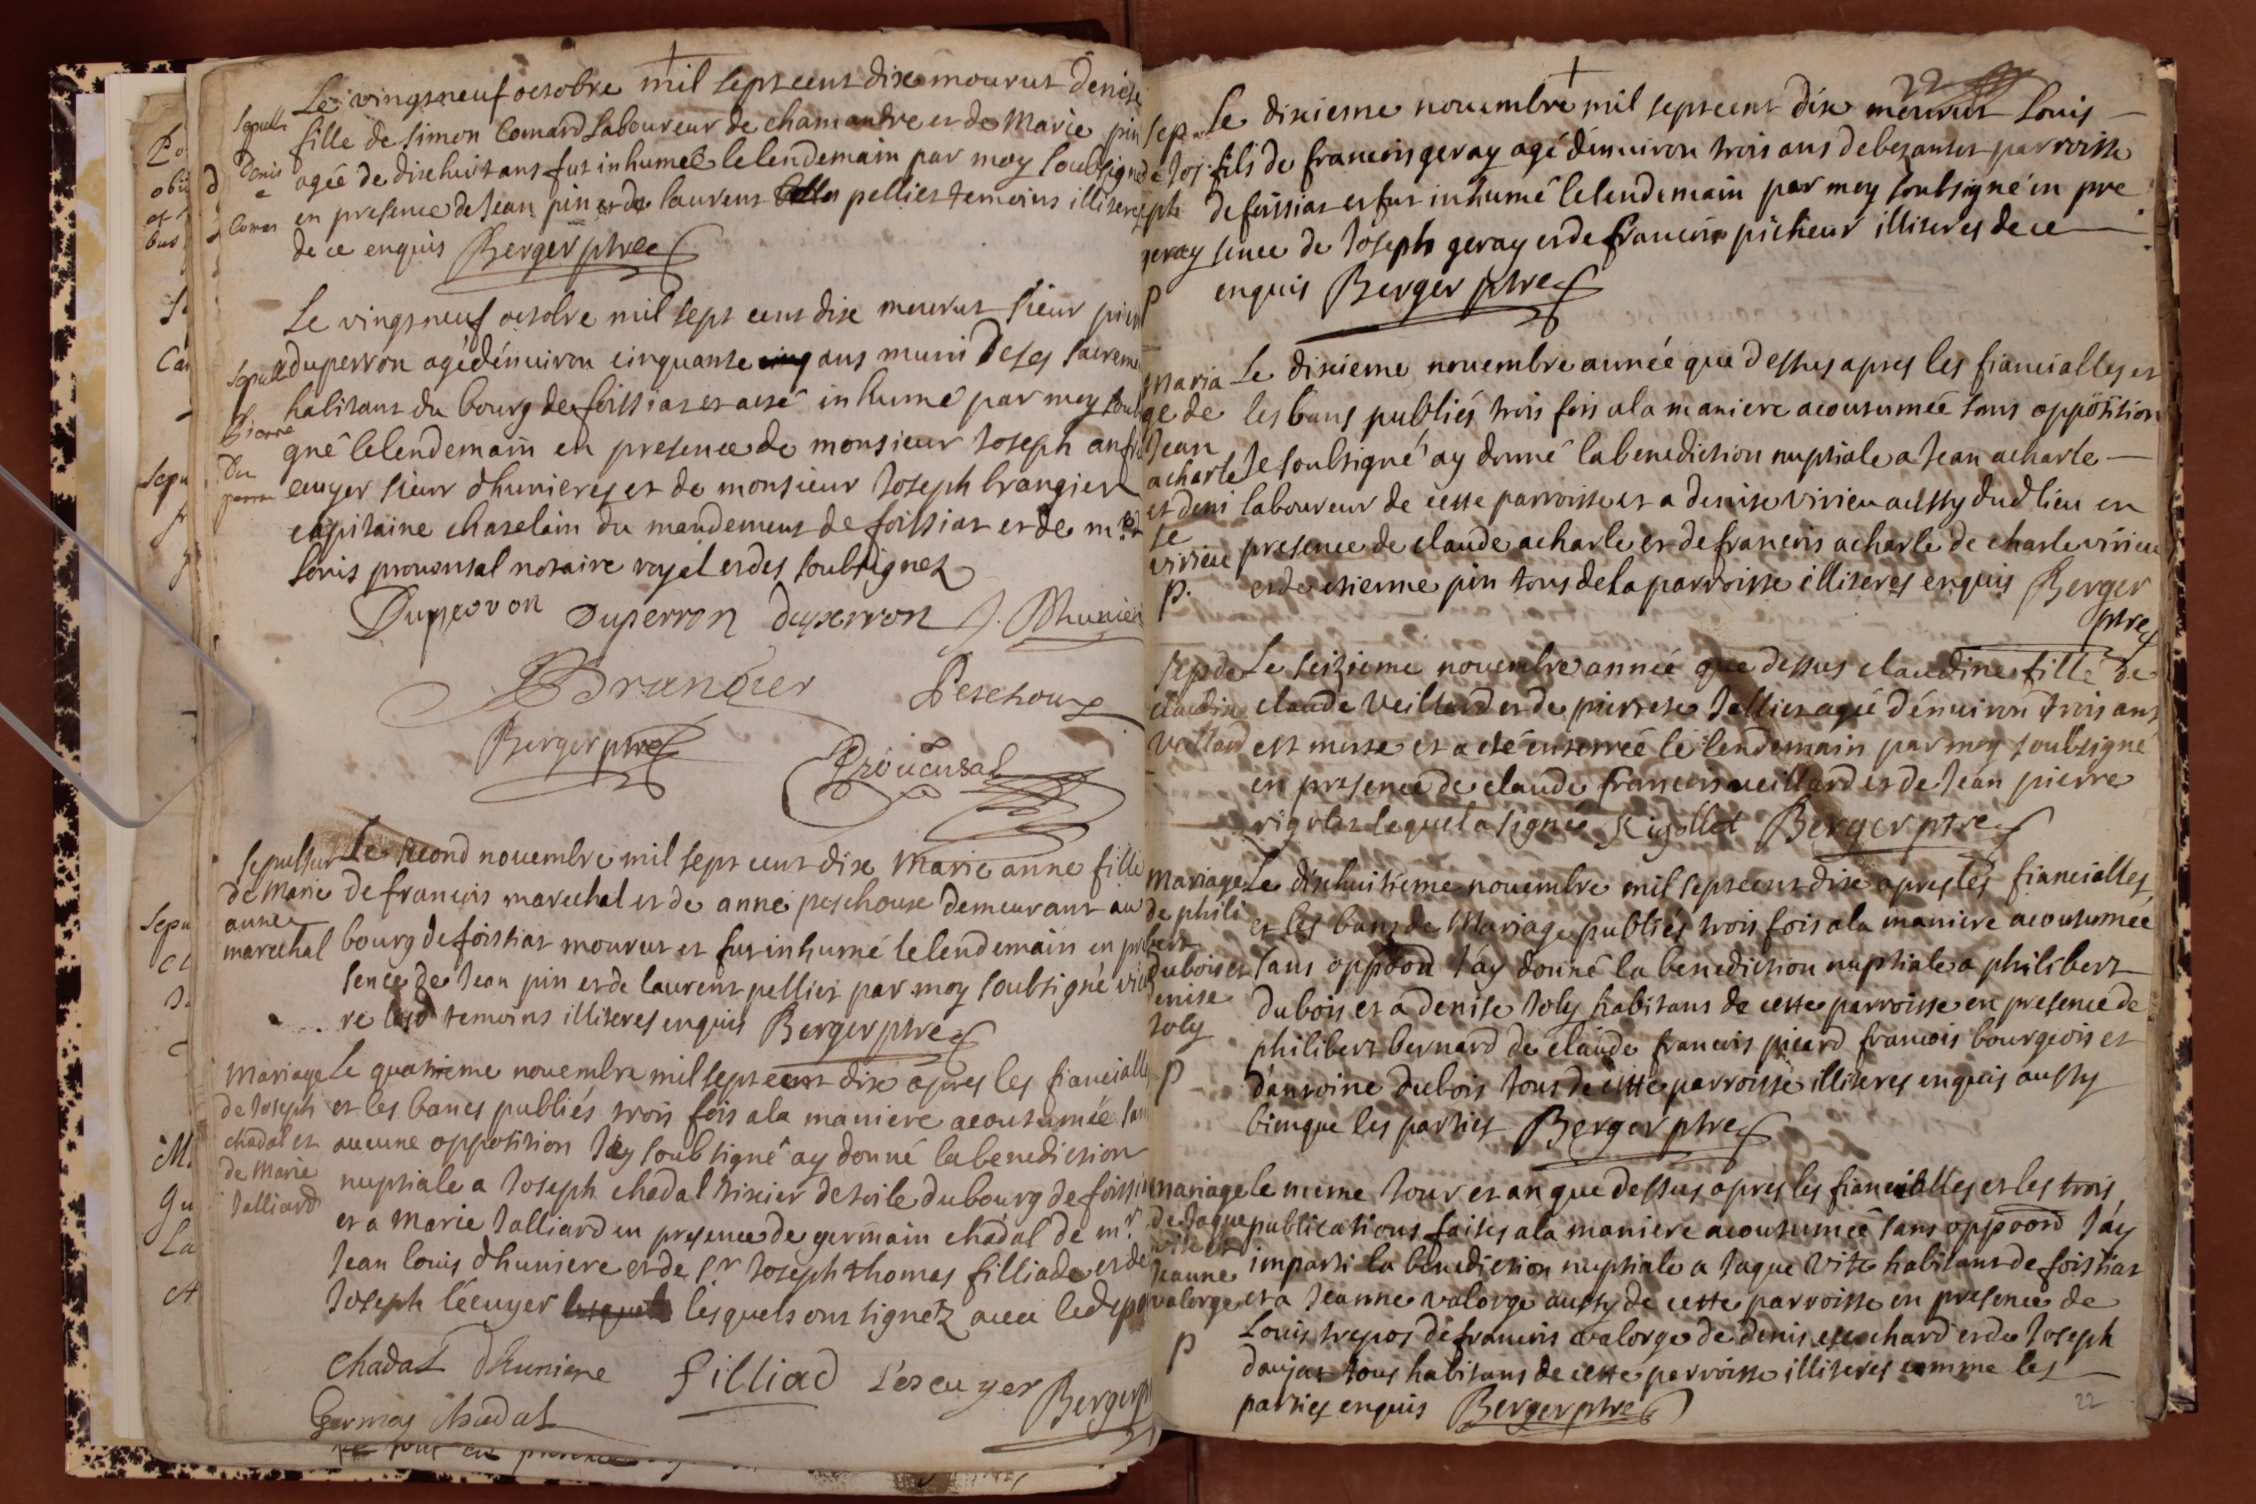 Le vingt neuf octobre mil sept cent dix mourut denise
fille de Simon Comard Laboureur de chamandre et de Marie pin
agée de dixhuit ans fut inhumeé le lendemain par moy soubsigné
en presence de Jean pin et de laurent pellies temoins illiteres
de ce enquis Berger ptre
Sepult
Denis
e
Comar
Le vingt neuf octobre mil sept cent dix mourut sieur pier
duperron agé dénuiron cinquante ans muni de ses sacreme
habitant du bourg de foissiat et a esté inhumé par moy soubs
gné le lendemain en presence de monsieur Joseph
ecuyer sieur dhunieres et de monsieur Joseph brangier
capitaine chatelain du mandement de foissiat et de mr
Louis prouensal notaire royal et des soubsignez
Sepult
Pierre
Du
perron
Duperron Duperron duperron J. Dhunier
Brangier Peschoux
Berger ptre Proüensal
Le second nouembre mil sept cent dix Marie anne fille
de francois marechal et de anne peschoux demeurant au
bourg de foissiat mourut et fut inhumé le lendemain en pre
sence de Jean pin et de laurent pellies par moy soubsigné vicai
re lesd temoins illiteres enquis Berger ptre
Sepultur
de Marie
anne
marechal
Le quatrieme nouembre mil sept cent dix apres les fiancialles
et les bancs publiés trois fois a la maniere acoutumée san
aucune oppotition Jay soubsigné ay donné la benediction
nuptiale a Joseph chadal tixier de toile du bourg de foissia
et a Marie Jalliard en presence de germain chadal de mr
Jean louis dhuniere et de sr Joseph thomas filliade et de
Joseph lécuyer lesquels ont signez auec led epo
Mariage
de Joseph
chadal et
de Marie
Jalliard
Chadal Dhuniere filliad Lescuyer Berger p
Germay Chadal
22
Le dixieme nouembre mil sept cent dix mourut Louis
fils de francois geray agé dénuiron trois ans de bezantet parroisse
de foissiat et fut inhumé le lendemain par moy soubsigné en pre
sence de Joseph geray et de francois picheur illiteres de ce
enquis Berger ptre
Sep
de Jos
eph
geray
p
Le dixieme nouembre année que dessus apres les fiancialles et
les bans publiés trois fois a la maniere acoutumée sans oppotition
Je soubsigné ay donné la benediction nuptiale a Jean acharle
laboureur de cette parroisse et a denise virieu aussy dud lieu en
presence de claude acharle et de francois acharle de charle virieu
et de etienne pin tous de la parroisse illiteres enquis Berger
ptre
Maria
ge de
Jean
acharle
et deni
se
virieu
p.
Le seizieme nouembre année que dessus claudine fille de
claude Veillard et de pierrete Jallier agé dénuiron trois ans
est morte et a eté enterrée le lendemain par moy soubsigné
en presence de claude francois veillard et de Jean pierre
rigolet lequel a signé Rigollet Berger ptre
Sep de
claudin
Veillard
Le dixhuitieme nouembre mil sept cent dix apres les fiancialles
et les bans de Mariage publiés trois fois a la maniere acoutumée
sans oppoon Jay donné la benediction nuptiale a philibert
dubois et a denise Joly habitans de cette parroisse en presence de
philibert bernard de claude francois picard francois bourgeois et
dantoine dubois tous de cette parroisse illiteres enquis aussy
bien que les parties Berger ptre
Mariage
de phili
bert
dubois et
denise
Joly
p
Le meme Jour et an que dessus apres les fiancialles et les trois
publications faites a la maniere acoutumée sans oppoon Jay
imparti la benediction nuptiale a Jaque Vite habitant de foissiat
et a Jeanne valorge aussy de cette parroisse en presence de
Louis trepos de francois valorge de denis exochard et de Joseph
doujat tous habitans de cette parroisse illiteres comme les
parties enquis Berger ptre
Mariage
de Jaque
vite et
Jeanne
valorge
p
22